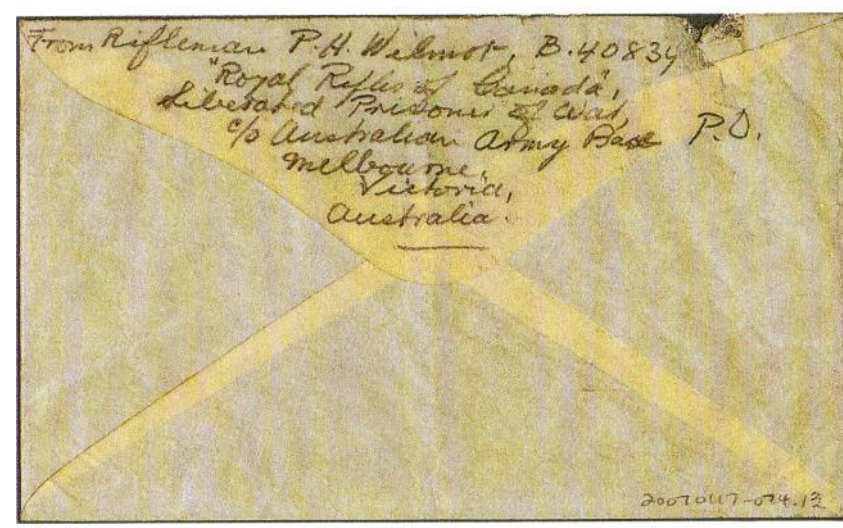 From Rifleman P.H. Wilmot, B.40834
"Royal Rifles of Canada",
Liberated Prisoner of War,
c/o Australian Army Base P.O.
Melbourne,
Victoria,
Australia.
20070117-074.12